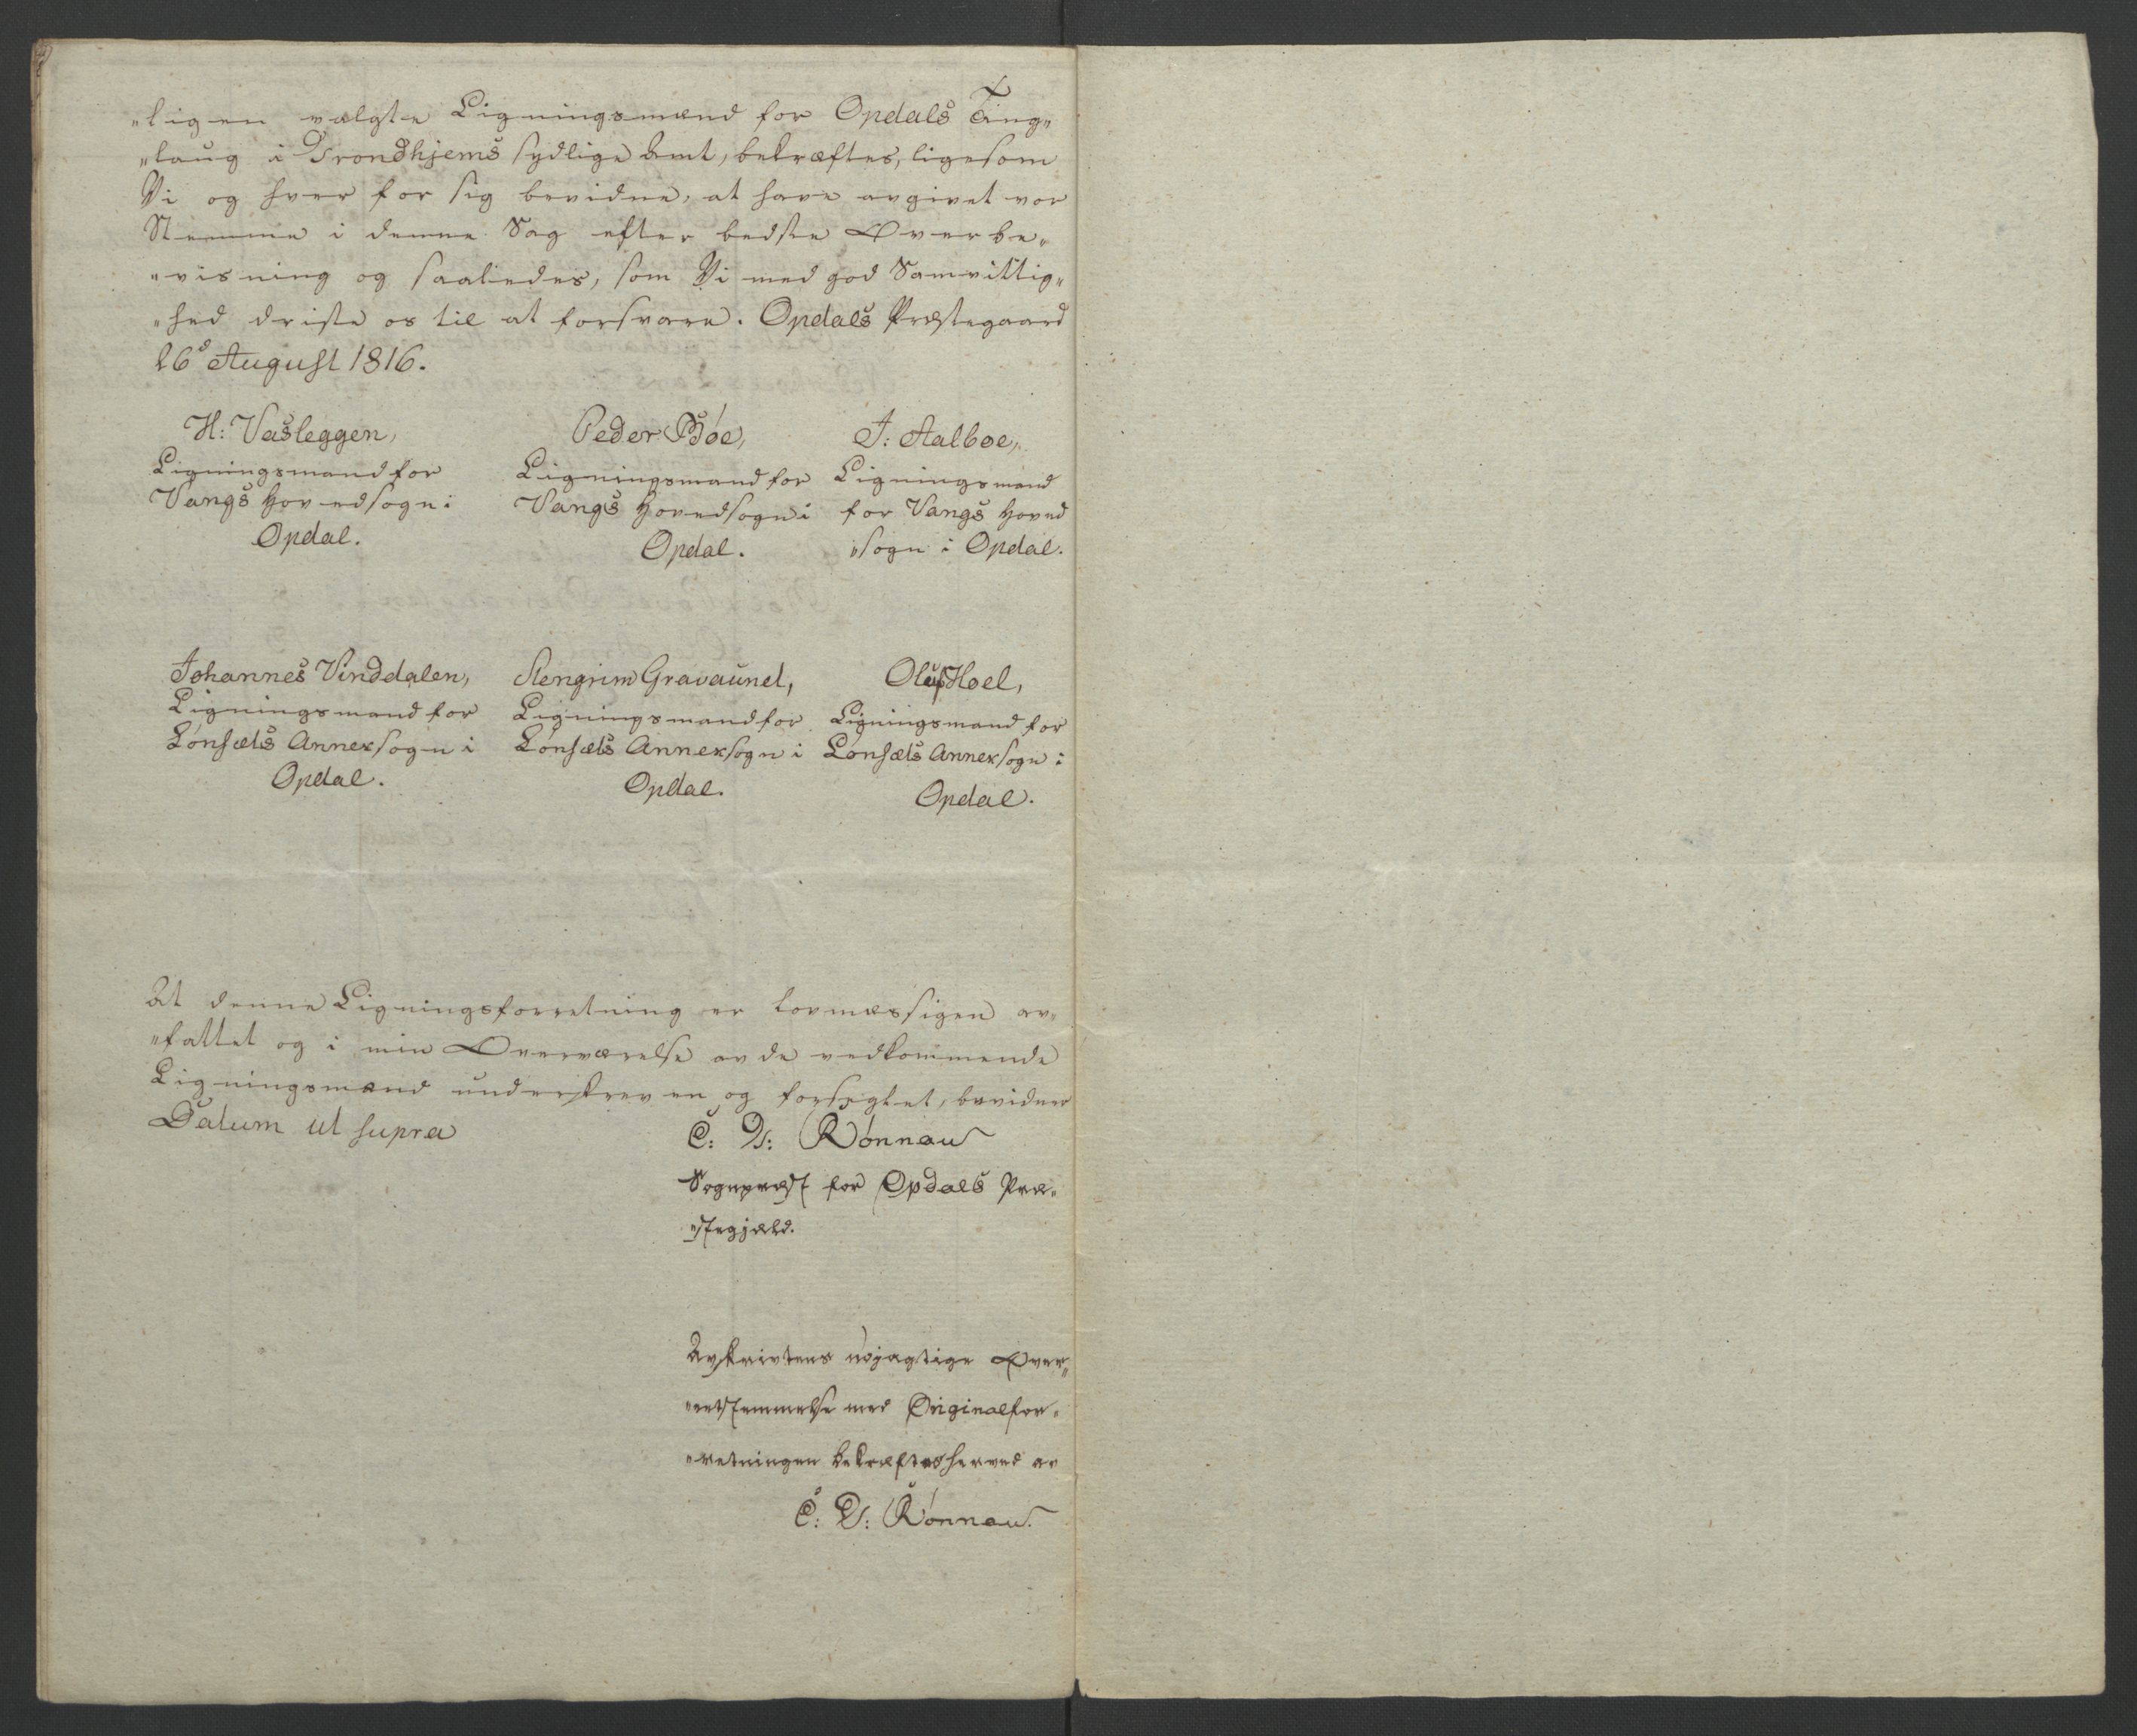 "ligen valgte Ligningsmænd for Opdals Ting"
"laug i Trondhjems sydlige Amt, bekræftes, ligesom
Vi og hver for sig bevidne, at have avgivet vor
Stemme i denne Sag efter bedste Overbe"
"visning og saaledes, som Vi med god Samvittig"
"hed driste os til at forsvare. Opdals Præstegaard
26d August 1816.
H: Vasleggen,
Ligningsmand for
Vangs Hovedsogn i
Opdal.
Peder Bøe,
Ligningsmand for
Vangs Hovedsogn i
Opdal.
J: Aalboe,
Ligningsmand
for Vangs Hoved
"sogn i Opdal.
Johannes Vinddalen,
Ligningsmand for
Lønsæts Annexsogn i
Opdal.
Stengrim Gravaunet,
Ligningsmand for
Lønsæts Annexsogn i
Opdal.
Oluf Hoel,
Ligningsmand for
Lønsæts Annexsogn i
Opdal.
At denne Ligningsforretning er lovmæssigen av"
"fattet og i min Overværelse av de vedkommende
Ligningsmænd underskreven og forseglet, bevidner
Datum ut supra
C: D: Rønnau
Sognepræst for Opdals Præ"
"stegjæld.
Avskrivtens nøjagtige Over"
"eensstemmelse med Originalfor"
"retningen bekræftes herved av
C: D: Rønnau.